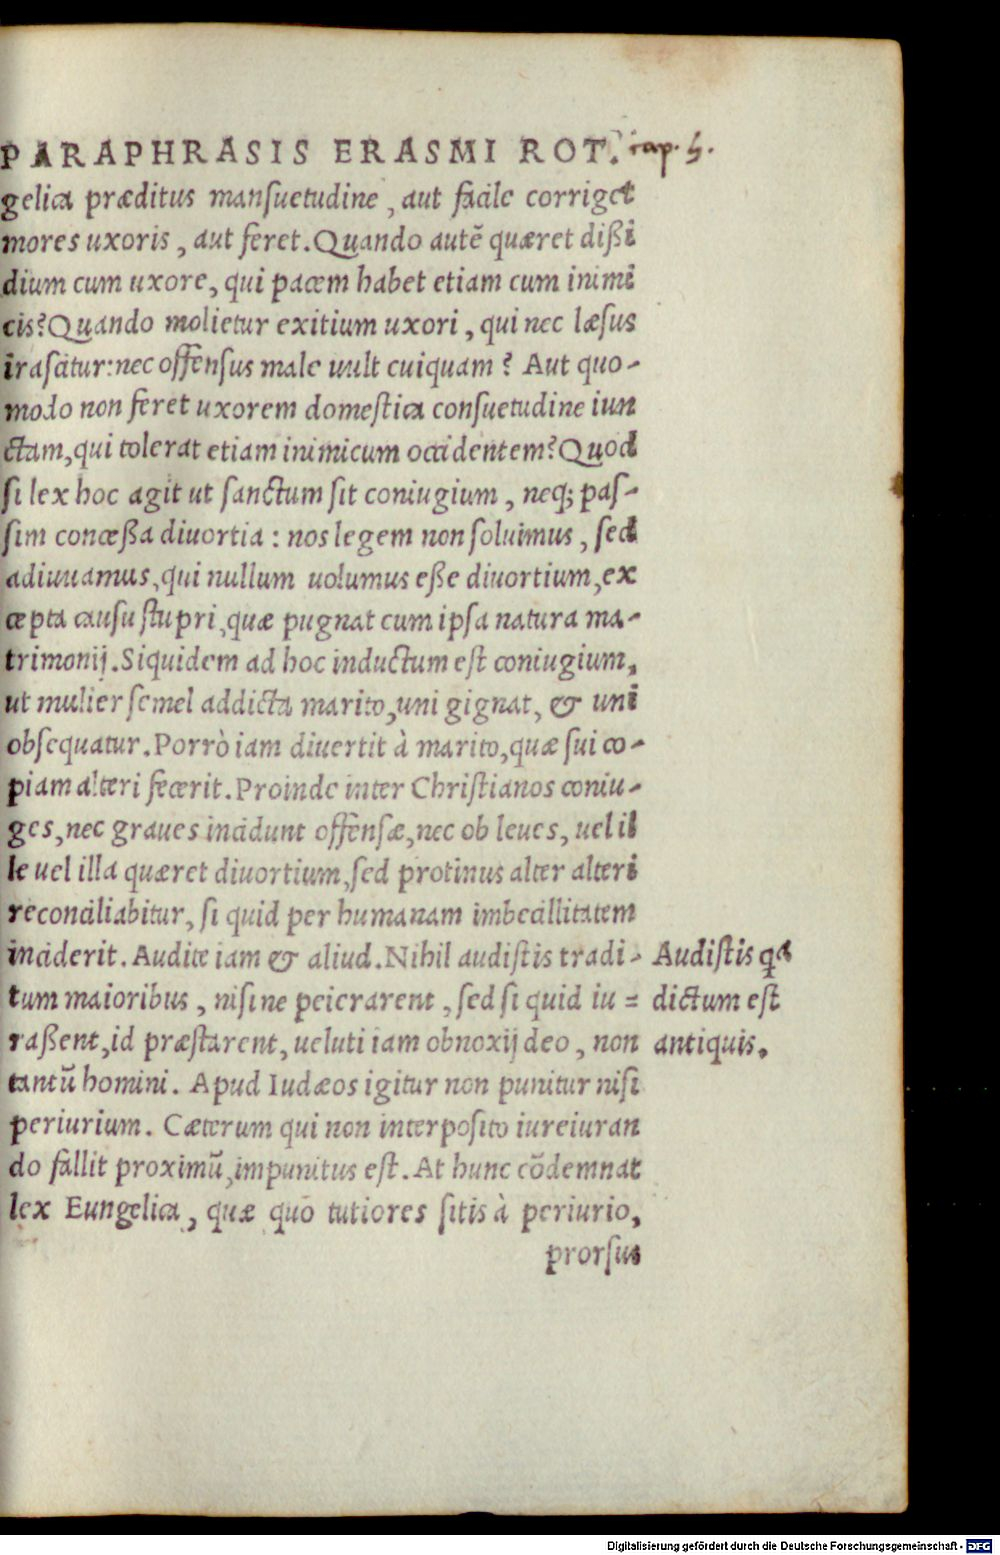 PARAPHRASIS ERASMI ROT. cap. 5.
gelica præditus mansuetudine, aut facile corriget
mores uxoris, aut feret. Quando autē quæret dißi
dium cum uxore, qui pacem habet etiam cum inimi
cis? Quando molietur exitium uxori, qui nec læsus
irascitur: nec offensus male uult cuiquam? Aut quo-
modo non feret uxorem domestica consuetudine iun
ctam, qui tolerat etiam inimicum occidentem? Quod
si lex hoc agit ut sanctum sit coniugium, neq; pas-
sim conceßa diuortia: nos legem non soluimus, sed
adiuuamus, qui nullum uolumus eße diuortium, ex
cepta causu stupri, quæ pugnat cum ipsa natura ma-
trimonij. Siquidem ad hoc inductum est coniugium,
ut mulier semel addicta marito, uni gignat, & uni
obsequatur. Porrò iam diuertit à marito, quæ sui co-
piam alteri fecerit. Proinde inter Christianos coniu-
ges, nec graues incidunt offensæ, nec ob leues, uel il
le uel illa quæret diuortium, sed protinus alter alteri
reconciliabitur, si quid per humanam imbecillitatem
inciderit. Audite iam & aliud. Nihil audistis tradi-
tum maioribus, nisi ne peierarent, sed si quid iu=
raßent, id præstarent, ueluti iam obnoxij deo, non
tantū homini. Apud Iudæos igitur non punitur nisi
periurium. Cæterum qui non interposito iureiuran
do fallit proximū, impunitus est. At hunc cōdemnat
lex Eungelica, quæ quo tutiores sitis à periurio,
prorsus
Audistis qa
dictum est
antiquis.
Digitalisierung gefördert durch die Deutsche Forschungsgemeinschaft - DFG